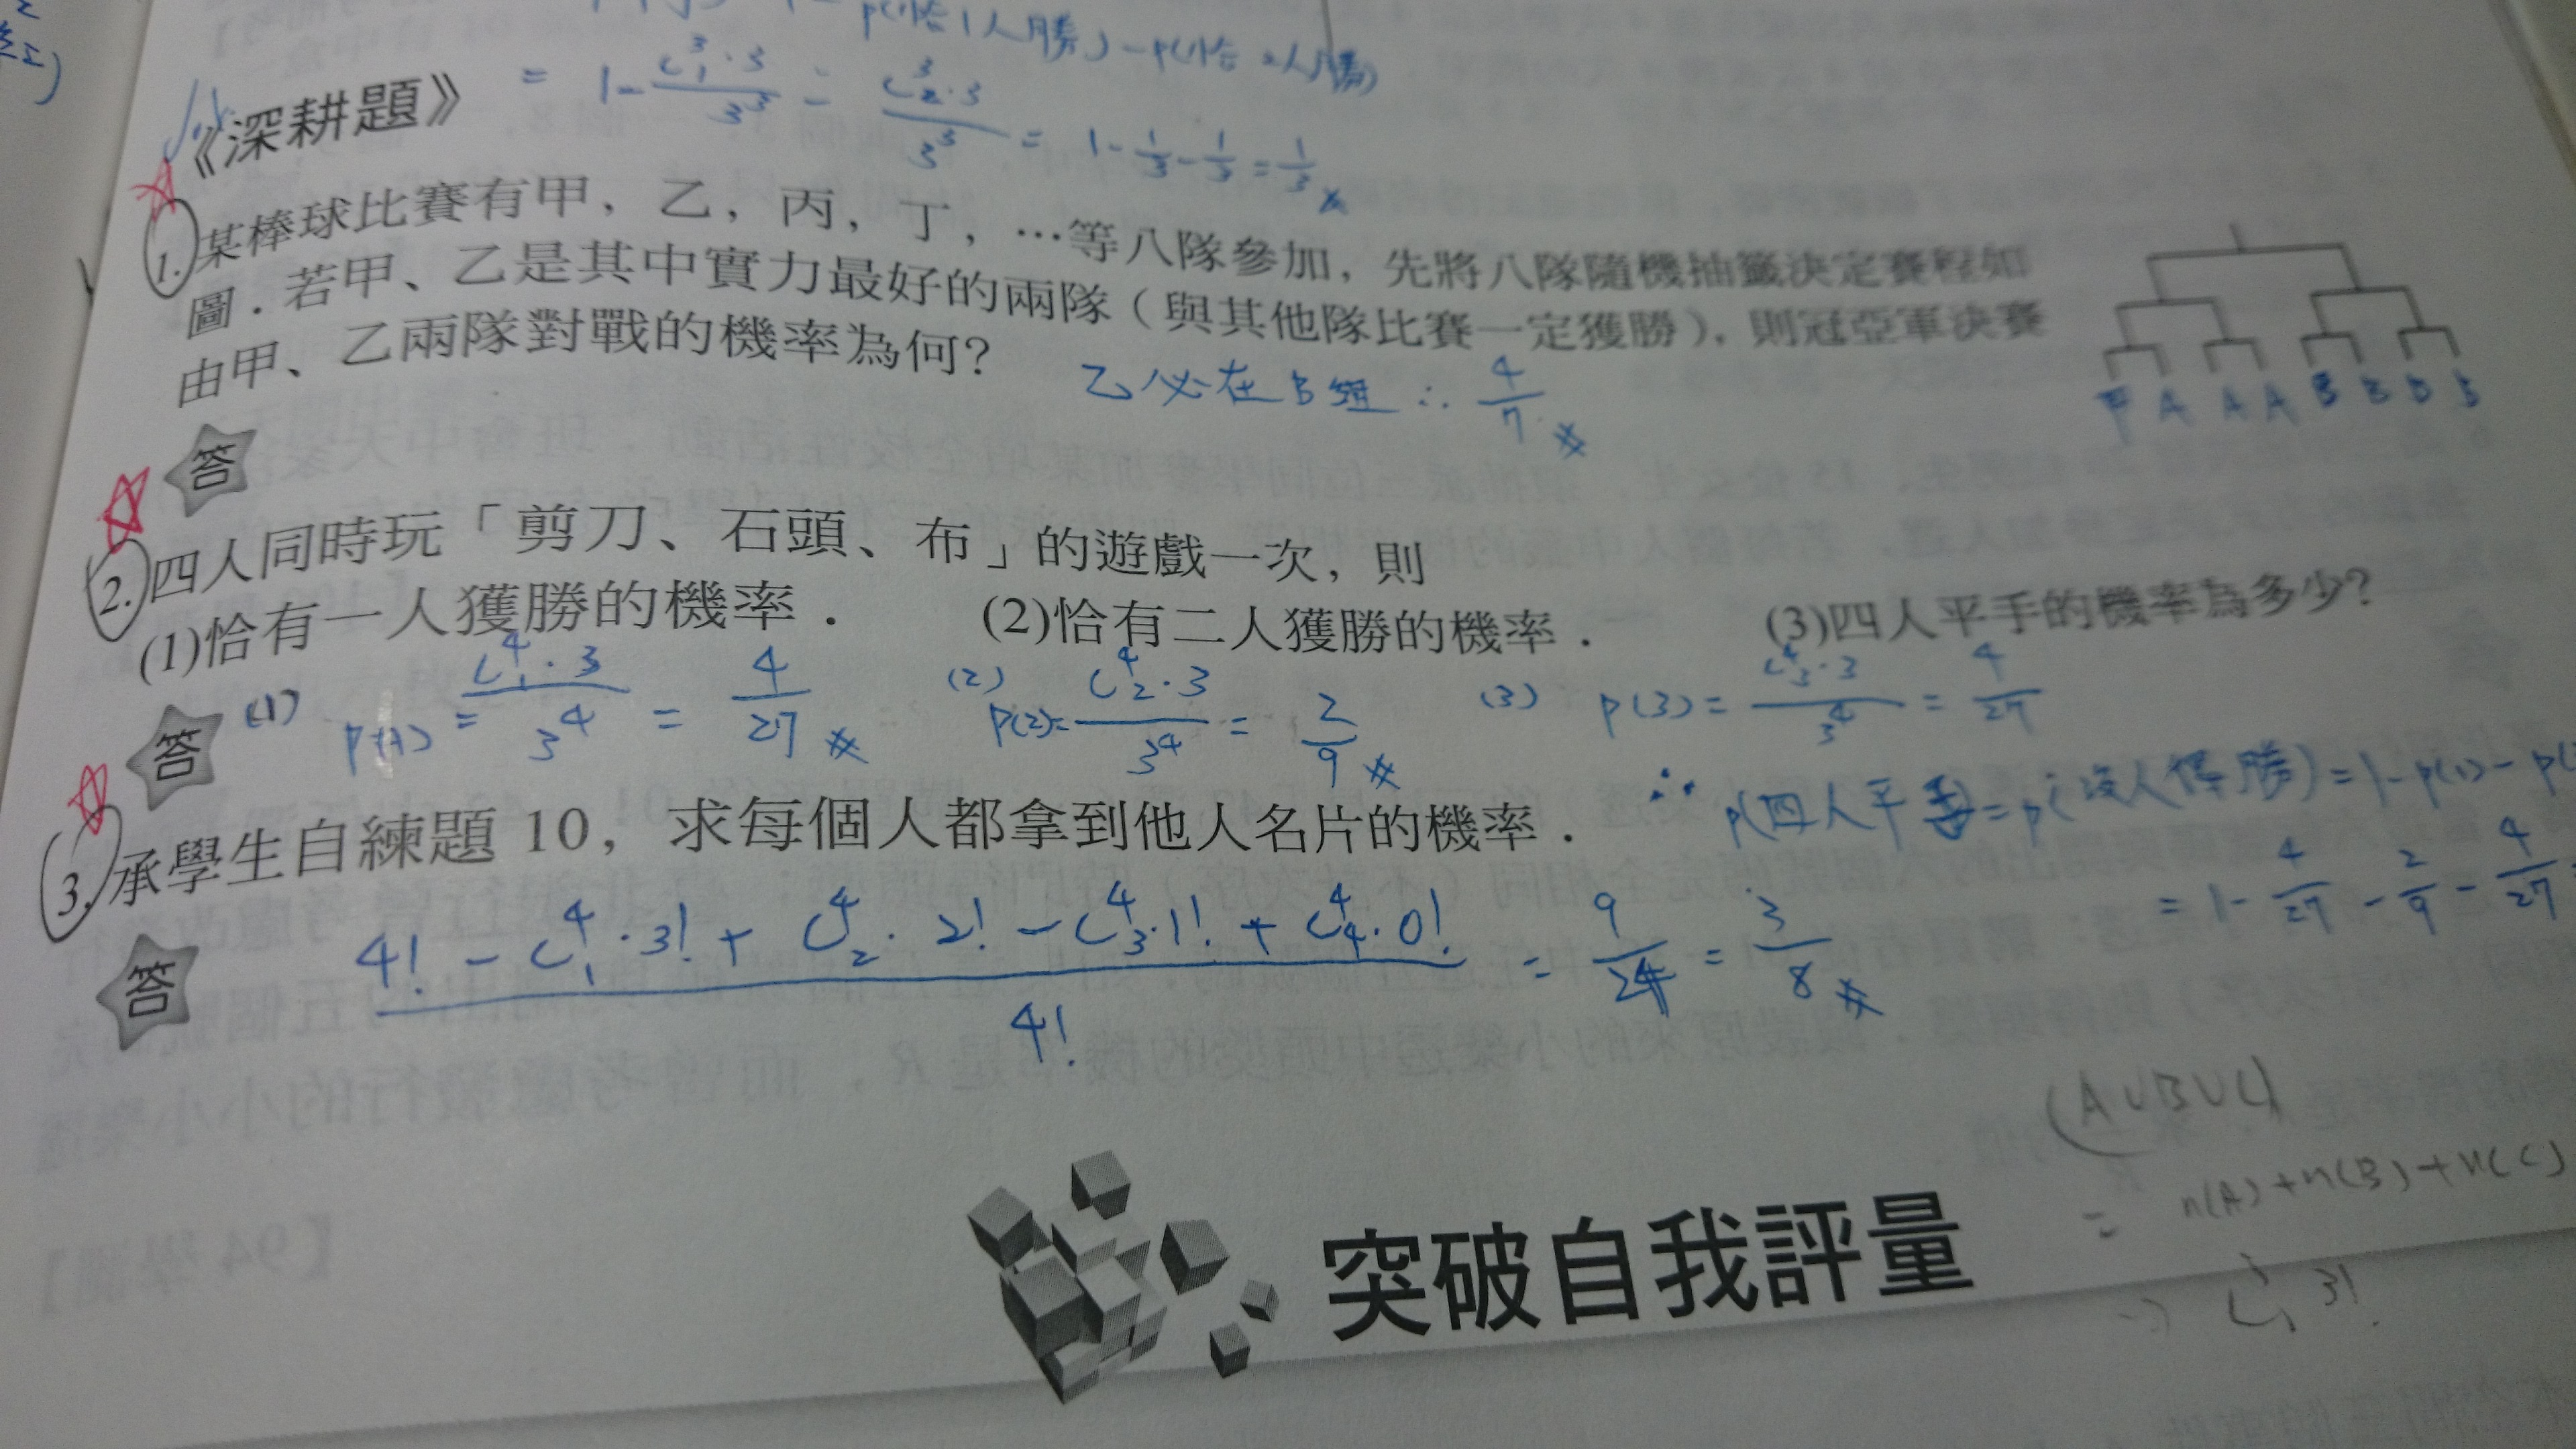 p(恰1人勝) - p(恰2人勝)
= 1 - C³₁·3/3³ - C³₂·3/3³ = 1 - 1/3 - 1/3 = 1/3
《深耕題》
1. 某棒球比賽有甲，乙，丙，丁，…等八隊參加，先將八隊隨機抽籤決定賽程如
圖．若甲、乙是其中實力最好的兩隊（與其他隊比賽一定獲勝），則冠亞軍決賽
由甲、乙兩隊對戰的機率為何？
乙必在B組 ∴ 4/7
甲 A A A B B B B
答
2. 四人同時玩「剪刀、石頭、布」的遊戲一次，則
(1)恰有一人獲勝的機率． (2)恰有二人獲勝的機率． (3)四人平手的機率為多少？
答 (1) p(1) = C⁴₁·3/3⁴ = 4/27 (2) P(2) = C⁴₂·3/3⁴ = 2/9 (3) p(3) = C⁴₃·3/3⁴ = 4/27
∴ p(四人平手) = p(沒人得勝) = 1 - p(1) - p(
= 1 - 4/27 - 2/9 - 4/27 =
3. 承學生自練題 10，求每個人都拿到他人名片的機率．
答 (4! - C⁴₁·3! + C⁴₂·2! - C⁴₃·1! + C⁴₄·0!)/4! = 9/24 = 3/8
(A∪B∪C)
= n(A)+n(B)+n(C)
C³₁ 3!
突破自我評量